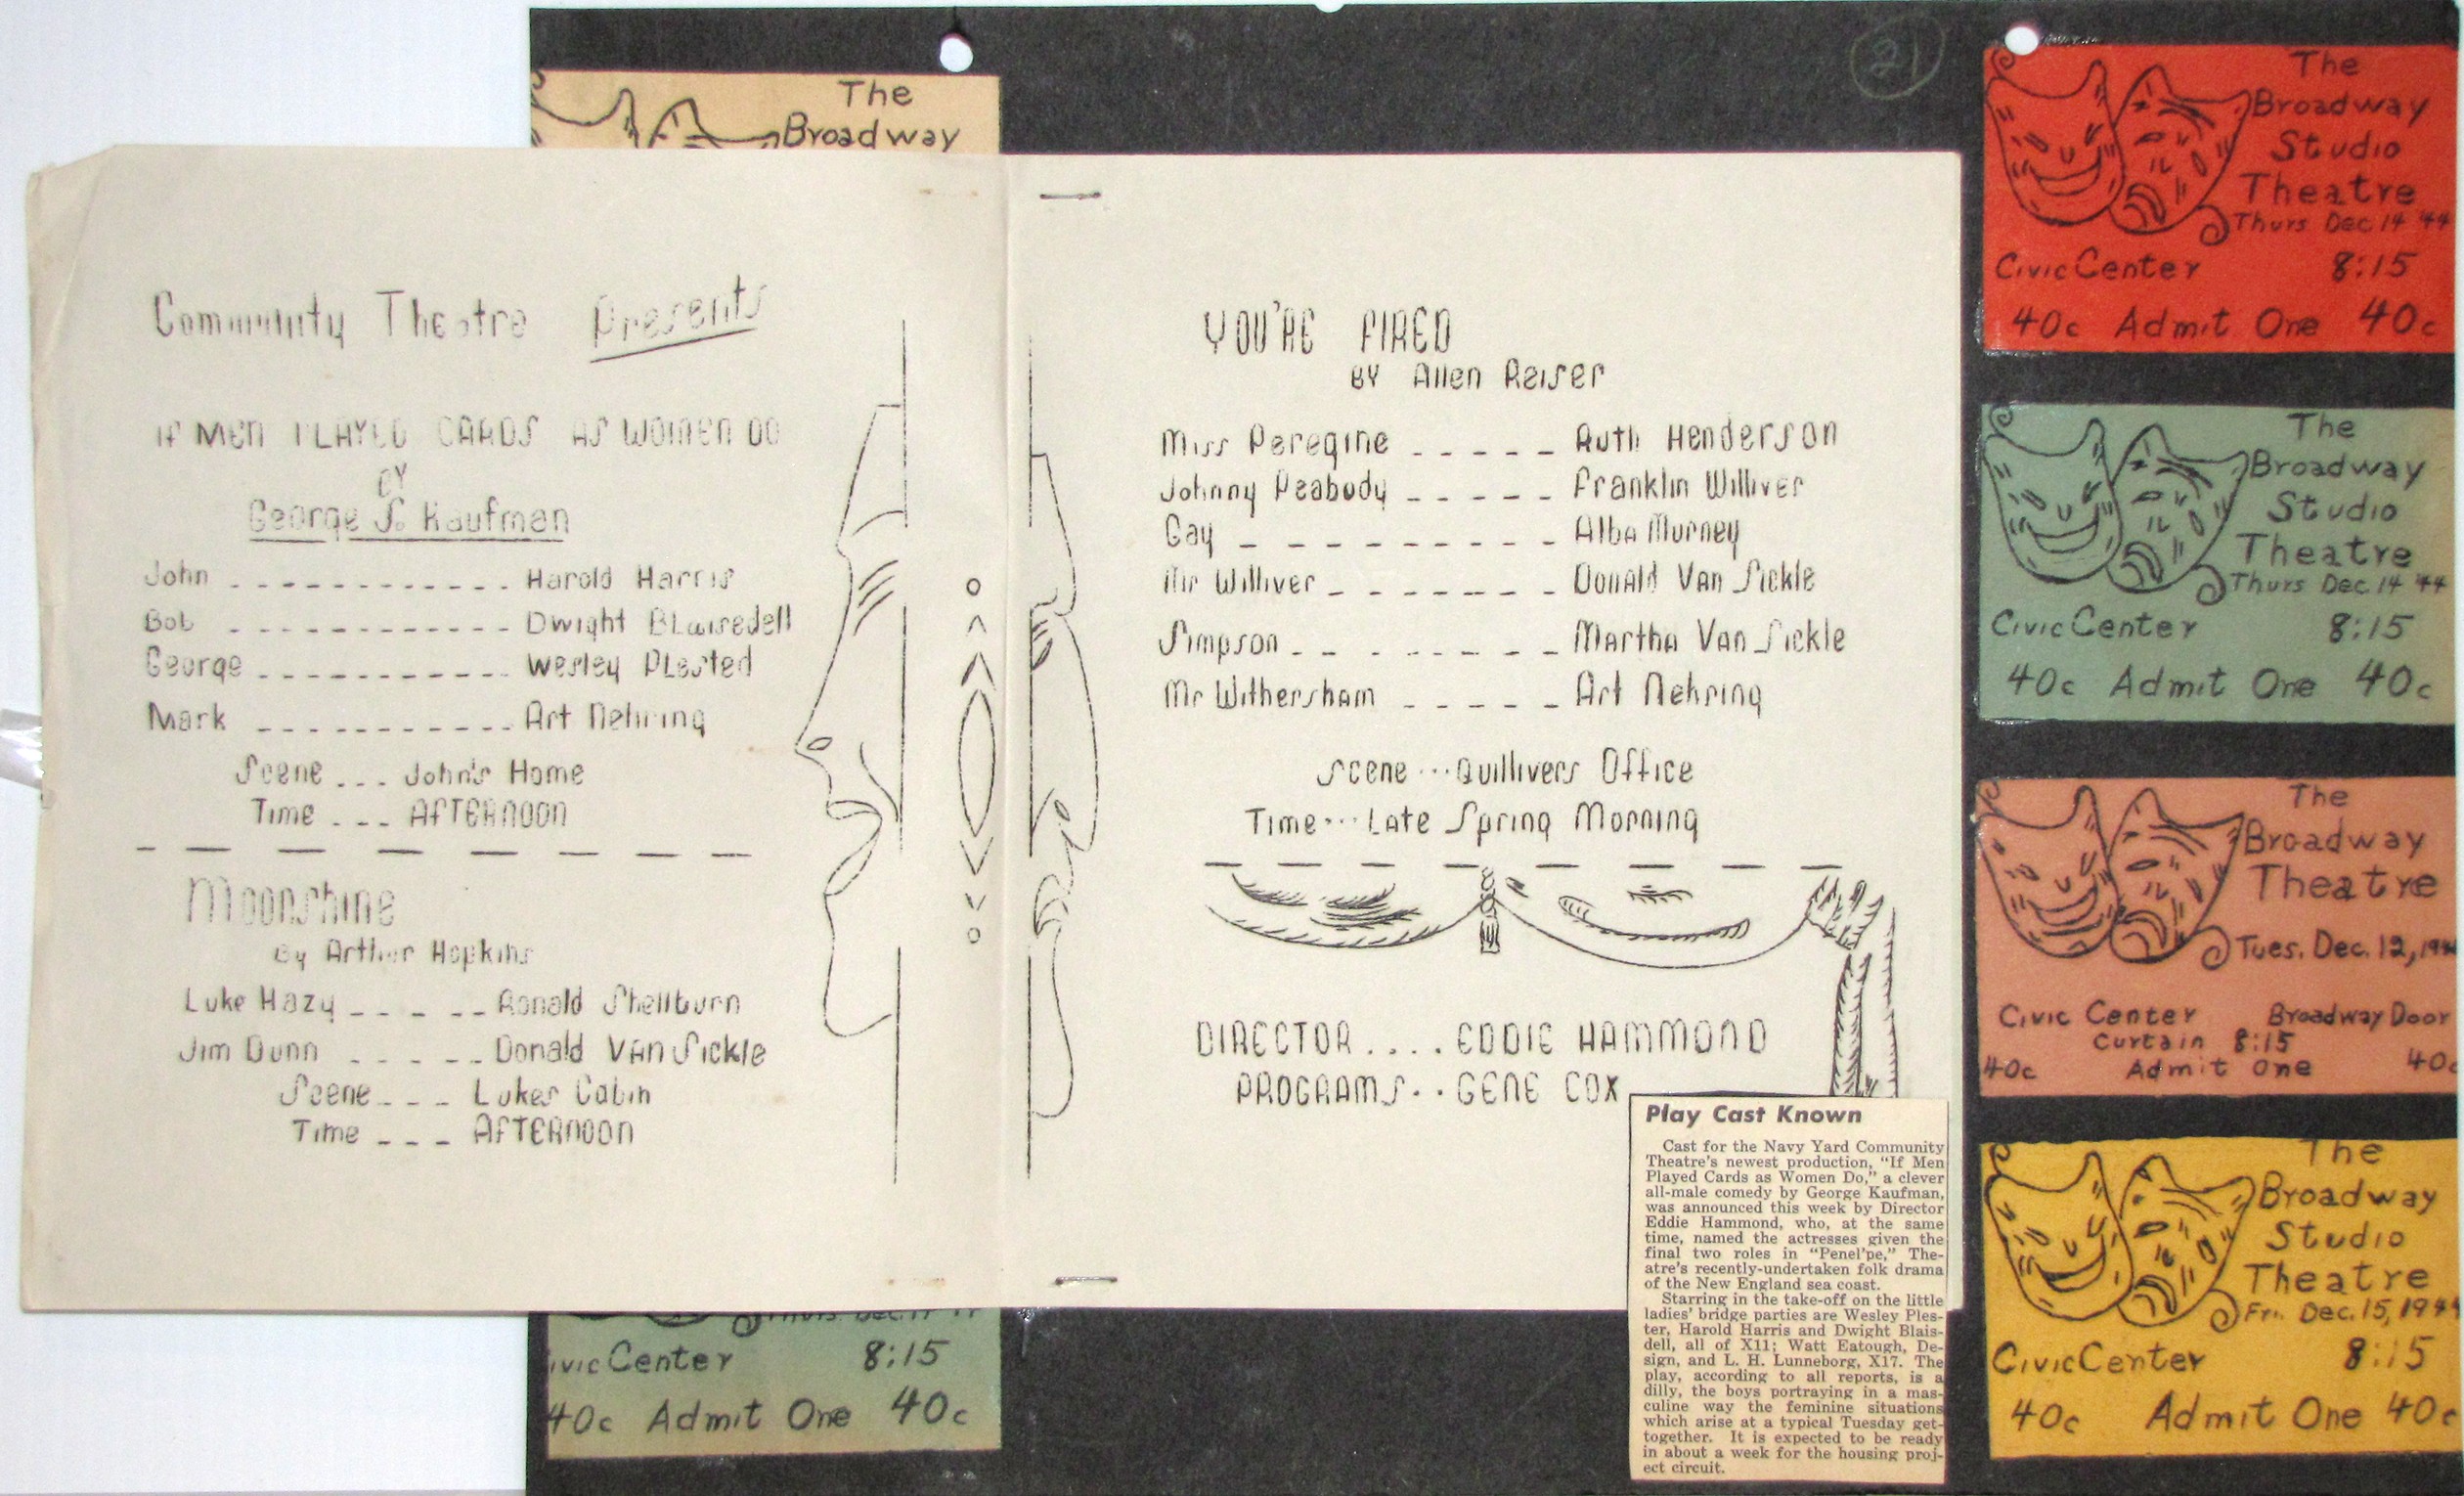 21
The
Broadway
Community Theatre Presents
IF MEN PLAYED CARDS AS WOMEN DO
BY
George S. Kaufman
John ------------ Harold Harris
Bob ------------ Dwight Blaisedell
George ----------- Wesley Plested
Mark ----------- Art Nehring
Scene --- John's Home
Time --- AFTERNOON
Moonshine
By Arther Hopkins
Luke Hazy ----- Ronald Shellburn
Jim Dunn ----- Donald Van Sickle
Scene --- Lukes Cabin
Time --- AFTERNOON
ivic Center 8:15
40c Admit One 40c
YOU'RE FIRED
BY Allen Reiser
Miss Peregine ----- Ruth Henderson
Johnny Peabody ----- Franklin Williver
Gay --------- Alba Murney
Mr Williver ------- Donald Van Sickle
Simpson ------- Martha Van Sickle
Mr Withersham ----- Art Nehring
Scene ... Quillivers Office
Time ... Late Spring Morning
DIRECTOR .... EDDIE HAMMOND
PROGRAMS .. GENE COX
Play Cast Known
Cast for the Navy Yard Community
Theatre's newest production, "If Men
Played Cards as Women Do," a clever
all-male comedy by George Kaufman,
was announced this week by Director
Eddie Hammond, who, at the same
time, named the actresses given the
final two roles in "Penel'pe," The-
atre's recently-undertaken folk drama
of the New England sea coast.
Starring in the take-off on the little
ladies' bridge parties are Wesley Ples-
ter, Harold Harris and Dwight Blais-
dell, all of X11; Watt Eatough, De-
sign, and L. H. Lunneborg, X17. The
play, according to all reports, is a
dilly, the boys portraying in a mas-
culine way the feminine situations
which arise at a typical Tuesday get-
together. It is expected to be ready
in about a week for the housing proj-
ect circuit.
The
Broadway
Studio
Theatre
Thurs Dec 14 '44
Civic Center 8:15
40c Admit One 40c
The
Broadway
Studio
Theatre
Thurs Dec 14 '44
Civic Center 8:15
40c Admit One 40c
The
Broadway
Theatre
Tues. Dec. 12, 194
Civic Center Broadway Door
Curtain 8:15
40c Admit One 40c
The
Broadway
Studio
Theatre
Fri. Dec. 15, 1944
Civic Center 8:15
40c Admit One 40c